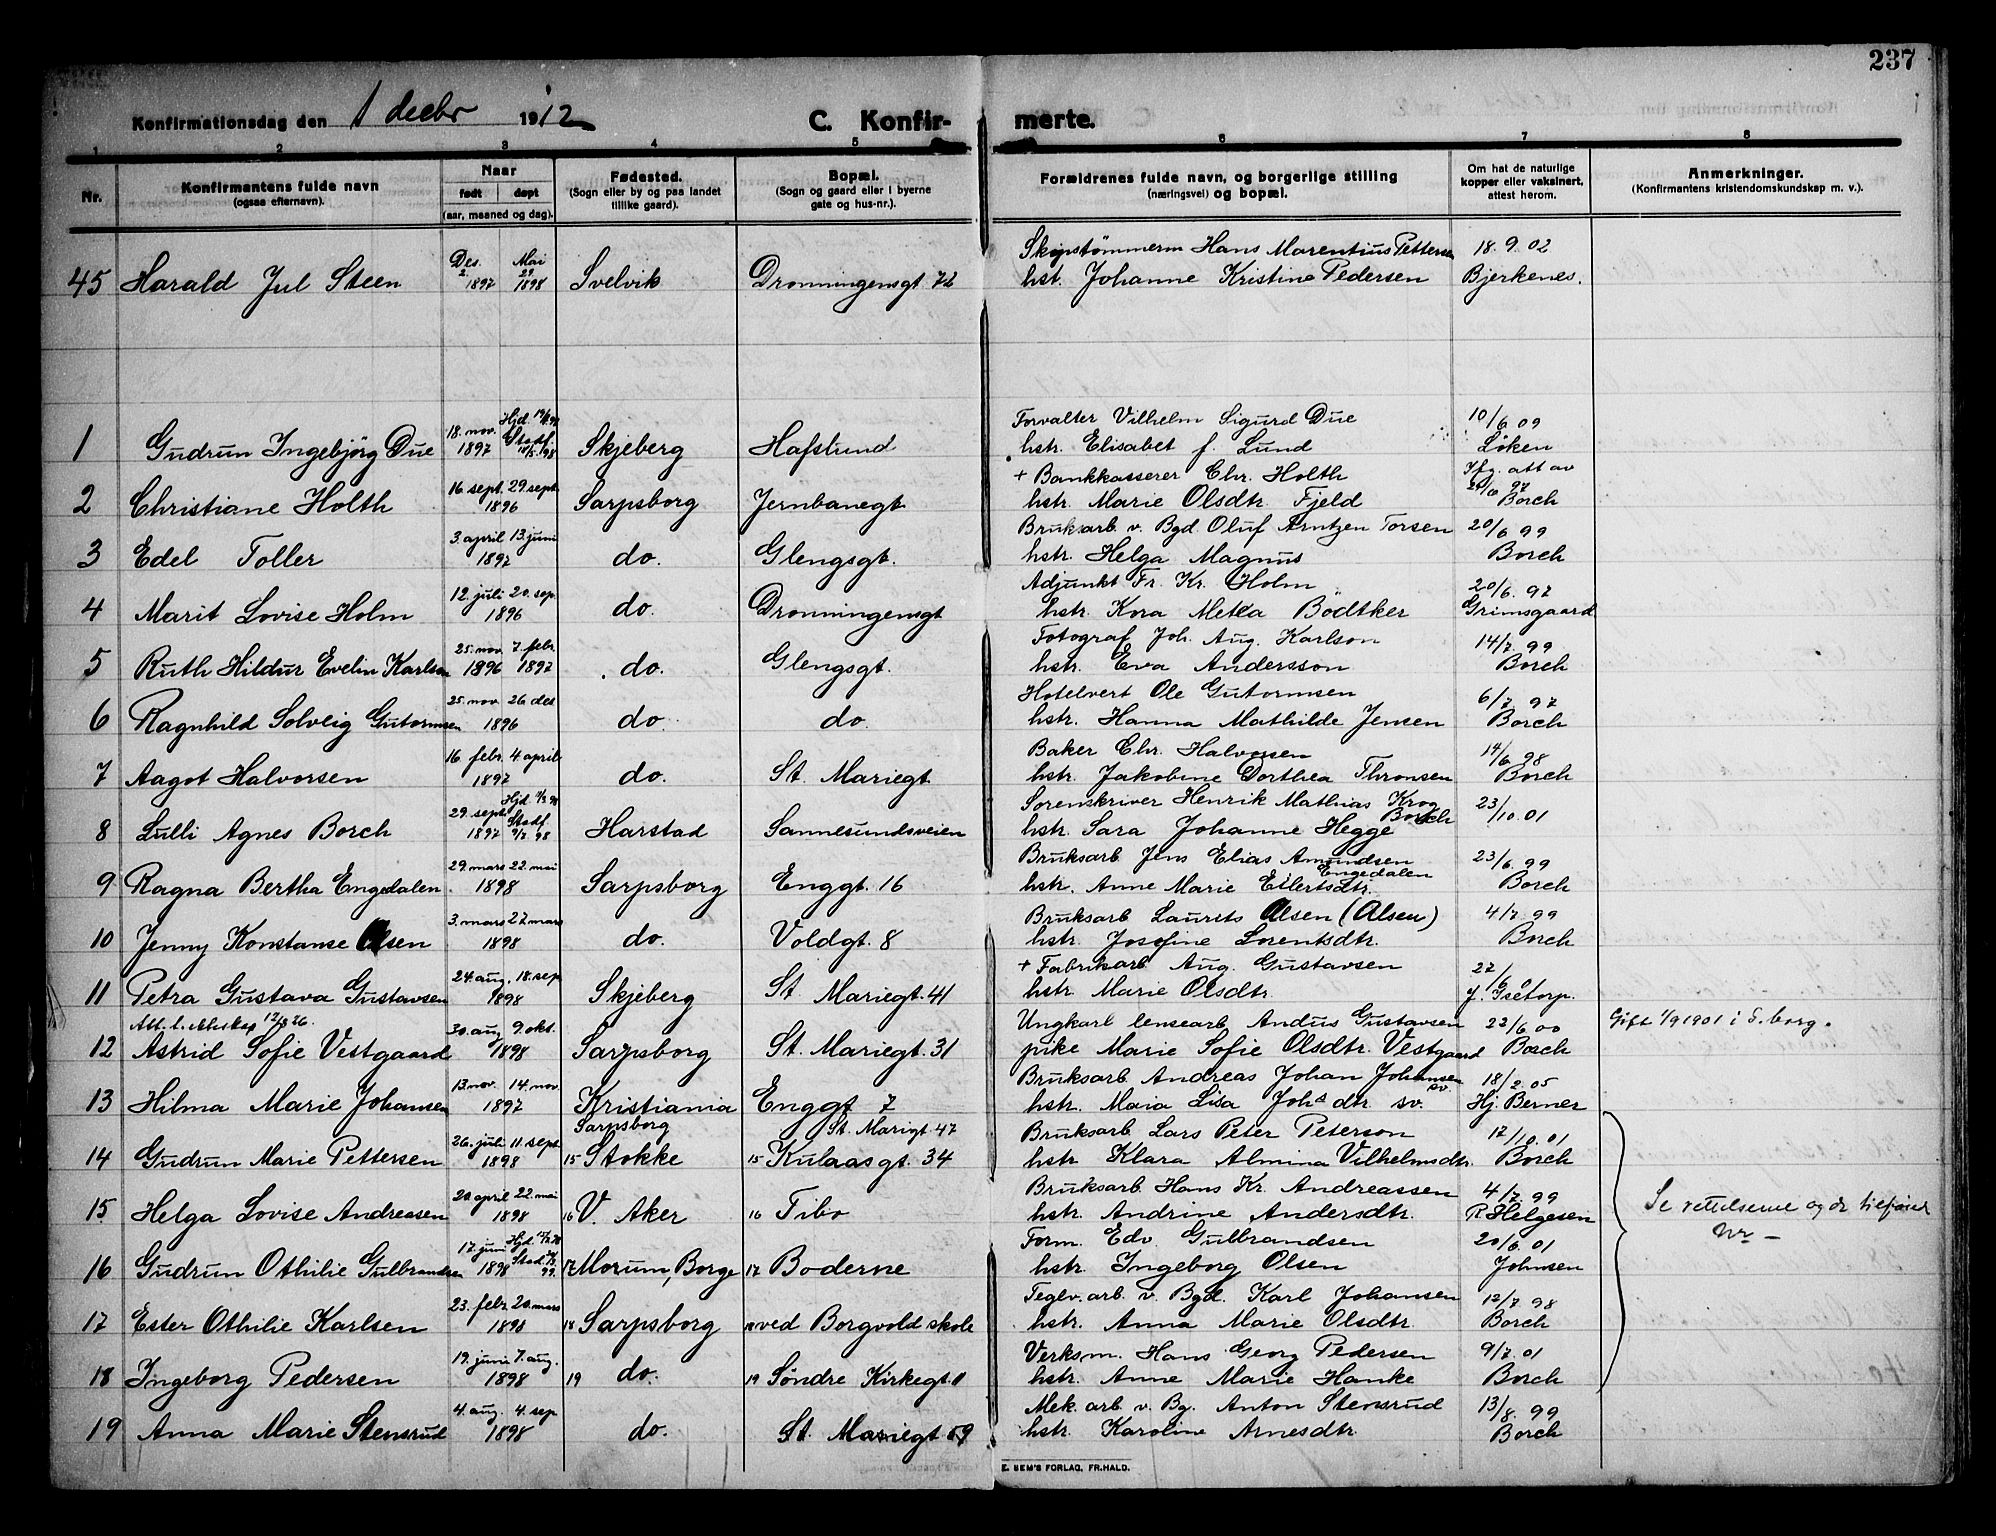 237
Konfirmationsdag den 1 decbr 1912 C. Konfir- merte.
1 2 3 4 5 6 7 8
Nr. Konfirmantens fulde navn (ogsaa efternavn). Naar født døpt (aar, maaned og dag). Fødested. (Sogn eller by og paa landet tillike gaard). Bopæl. (Sogn og gaard eller i byerne gate og hus-nr.). Forældrenes fulde navn, og borgerlige stilling (næringsvei) og bopæl. Om hat de naturlige kopper eller vaksinert, attest herom. Anmerkninger. (Konfirmantens kristendomskundskap m. v.).
Des. Mai Skipstømmerm Hans Marentius Pettersen 18. 9. 02
45 Harald Jul Steen 2. 1897 29 1898 Svelvik Dronningensgt. 72 hst. Johanne Kristine Pedersen Bjerkenes.
18. nov. Hjd. Forvalter Vilhelm Sigurd Due 10/6 09
1 Gudrun Ingebjörg Due 1897 Stadf. 98 Skjeberg Hafslund hstr. Elisabet f. Lund Løken
16 sept. 29. sept. + Bankkasserer Chr. Holth Ifg. att av
2 Christiane Holth 1896 Sarpsborg Jernbanegt. hstr. Marie Olsdtr. Fjeld 97 Borch
3. april 13. juni Bruksarb. v. Bgd. Oluf Arntzen Torsen 20/6 99
3 Edel Toller 1897 do. Glengsgt. hstr. Helga Magnus Borch
12. juli 20. sep. Adjunkt Fr. Kr. Holm 20/6. 97
4 Marit Lovise Holm 1896 do. Dronningensgt hstr. Kora Metea Bödtker Grimsgaard
25. nov. 7. febr. Fotograf Joh. Aug. Karlson 14/7. 99
5 Ruth Hildur Evelin Karlson 1896 1897 do. Glengsgt. hstr. Eva Andersson Borch
25. nov. 26 des Hotelvert Ole Gutormsen 6/7. 97
6 Ragnhild Solveig Gutormsen 1896 do. do. hstr. Hanna Mathilde Jensen Borch
16. febr. 4 april Baker Chr. Halvorsen 14/6. 98
7 Aagot Halvorsen 1897 do. St. Mariegt. hstr. Jakobine Dorthea Thronsen Borch
29. sept. Hjd. Sorenskriver Henrik Mathias Krog Borch 23/10. 01
8 Lulli Agnes Borch 1897 Stadf. 98 Harstad Sannesundsveien hstr. Sara Johanne Hegge
29. mars 22. mai Bruksarb Jens Elias Amundsen Engedalen 23/6. 99
9 Ragna Bertha Engedalen 1898 Sarpsborg Enggt. 16 hstr. Anne Marie Eilertsdtr. Borch
3. mars 27 mars Bruksarb Laurits Olsen (Alsen) 4/7. 99
10 Jenny Konstanse Olsen 1898 do. Voldgt. 8 hstr. Josefine Lorentsdtr. Borch
24. aug. 18. sep + Fabrikarb Aug. Gustavsen 27
11 Petra Gustava Gustavsen 1898 Skjeberg St. Mariegt. 41 hstr. Marie Olsdtr. J. Isetorp.
30. aug. 9. okt. Ungkarl lensearb Andus Gustavsen 22/6 00 Gift 1/9 1901 i S.borg.
12 Astrid Sofie Vestgaard 1898 Sarpsborg St. Mariegt. 31 pike Marie Sofie Olsdtr. Vestgaard Borch
13. nov. 14. nov. Bruksarb Andreas Johan Johansen sv. 18/2. 05
13 Hilma Marie Johansen 1897 Kristiania Enggt 7 hstr. Maia Lisa Johs dtr sv. Hj. Berner
26. juli 11. sept. Sarpsborg St. Mariegt. 47 Bruksarb Lars Peter Peterson 17/10. 01
14 Gudrun Marie Pettersen 1898 15 Stokke 15 Kulaasgt. 34 hstr Klara Almina Vilhelmsdtr. Borch
20. april 22. mai Bruksarb. Hans Kr. Andreassen 4/7. 99
15 Helga Lovise Andreasen 1898 16 V. Aker 16 Tibo hstr. Andrine Andersdtr. R Helgesen Se rettelserne
17. juni Hjd. Form. Edv. Gulbrandsen 20/6. 01
16 Gudrun Othilie Gulbrandsen 1898 Stad. 99. 17 Morum, Borge 17 Boderne hstr. Ingeborg Olsen Johnsen
23. febr. 20. mars Teglv. arb. v. Bgd. Karl Johansen 12/7 98
17 Ester Othilie Karlsen 1898 18 Sarpsborg 18 ved Borgvold skole hstr. Anna Marie Olsdtr. Borch
19. juni 7. aug. Verksm. Hans Georg Pedersen 9/7. 01
18 Ingeborg Pedersen 1898 19 do. 19 Söndre Kirkegt. 11 hstr. Anne Marie Hanke Borch
4. aug. 4. sep Mek. arb v. Bg. Anton Stensrud 13/8. 99
19 Anna Marie Stensrud 1898 do. St. Mariegt. 59 hstr. Karoline Arnesdtr. Borch
E. SEM'S FORLAG, FR.HALD.